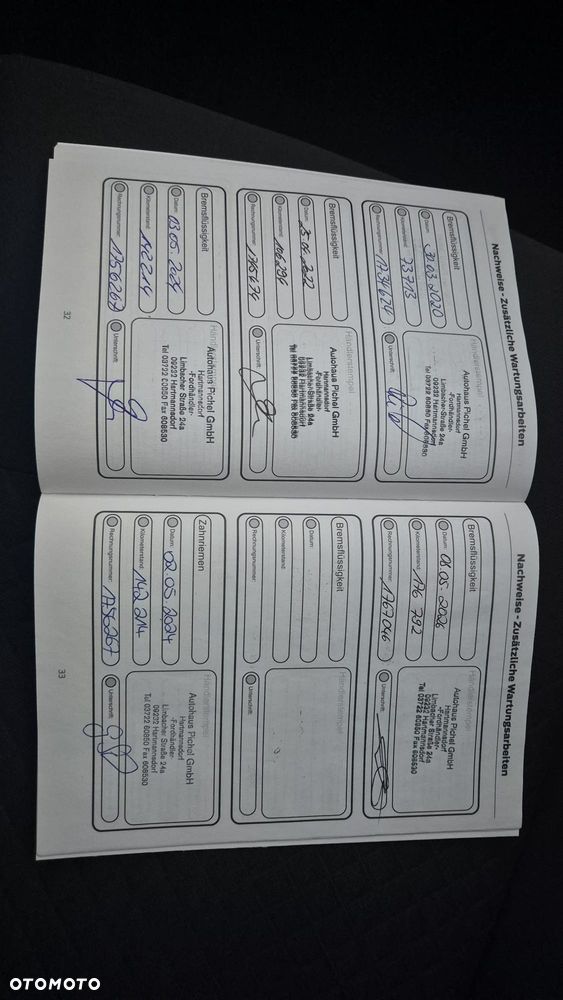 Nachweise - Zusätzliche Wartungsarbeiten
Bremsflüssigkeit
Datum: 31.03.2020
Kilometerstand: 73713
Rechnungsnummer: 1734624
Händlerstempel
Autohaus Pichel GmbH
-Fordhändler-
Limbacher-Straße 24a
09232 Hartmannsdorf
Tel 03722 60850 Fax 608530
Unterschrift:
Bremsflüssigkeit
Datum:
Kilometerstand: 106294
Rechnungsnummer: 1745674
Händlerstempel
Autohaus Pichel GmbH
Hartmannsdorf
-Fordhändler-
Limbacher-Straße 24a
09232 Hartmannsdorf
Tel 03722 60850 Fax 608530
Unterschrift:
Bremsflüssigkeit
Datum: 03.05.2024
Kilometerstand: 142214
Rechnungsnummer: 1756267
Händlerstempel
Autohaus Pichel GmbH
Hartmannsdorf
-Fordhändler-
Limbacher Straße 24a
09232 Hartmannsdorf
Tel 03722 60850 Fax 608530
Unterschrift:
32
Nachweise - Zusätzliche Wartungsarbeiten
Bremsflüssigkeit
Datum: 08.05.2026
Kilometerstand: 176 792
Rechnungsnummer: 1767046
Händlerstempel
Autohaus Pichel GmbH
Hartmannsdorf
-Fordhändler-
Limbacher Straße 24a
09232 Hartmannsdorf
Tel 03722 60850 Fax 608530
Unterschrift:
Bremsflüssigkeit
Datum:
Kilometerstand:
Rechnungsnummer:
Händlerstempel
Unterschrift:
Zahnriemen
Datum: 02.05.2024
Kilometerstand: 142 214
Rechnungsnummer: 1756267
Händlerstempel
Autohaus Pichel GmbH
Hartmannsdorf
-Fordhändler-
Limbacher Straße 24a
09232 Hartmannsdorf
Tel 03722 60850 Fax 608530
Unterschrift:
33
OTOMOTO